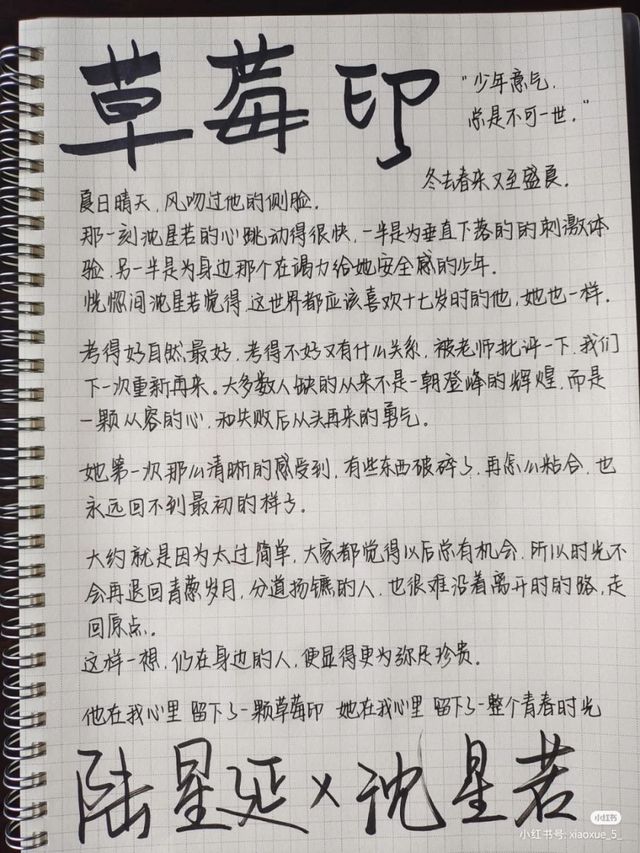 草莓印
"少年意气,
总是不可一世."
冬去春来又至盛夏.
夏日晴天,风吻过他的侧脸.
那一刻沈星若的心跳动得很快,一半是为垂直下落的的刺激体
验,另一半是为身边那个在竭力给她安全感的少年.
恍惚间沈星若觉得,这世界都应该喜欢十七岁时的他,她也一样.
考得好自然最好,考得不好又有什么关系,被老师批评一下,我们
下一次重新再来。大多数人缺的从来不是一朝登峰的辉煌,而是
一颗从容的心,和失败后从头再来的勇气。
她第一次那么清晰的感受到,有些东西破碎了,再怎么粘合,也
永远回不到最初的样子.
大约就是因为太过简单,大家都觉得以后总有机会.所以时光不
会再退回青葱岁月,分道扬镳的人,也很难沿着离开时的路,走
回原点.
这样一想,仍在身边的人,便显得更为弥足珍贵。
他在我心里 留下了一颗草莓印 她在我心里 留下了一整个青春时光
陆星延×沈星若
小红书
小红书号:xiaoxue_5_